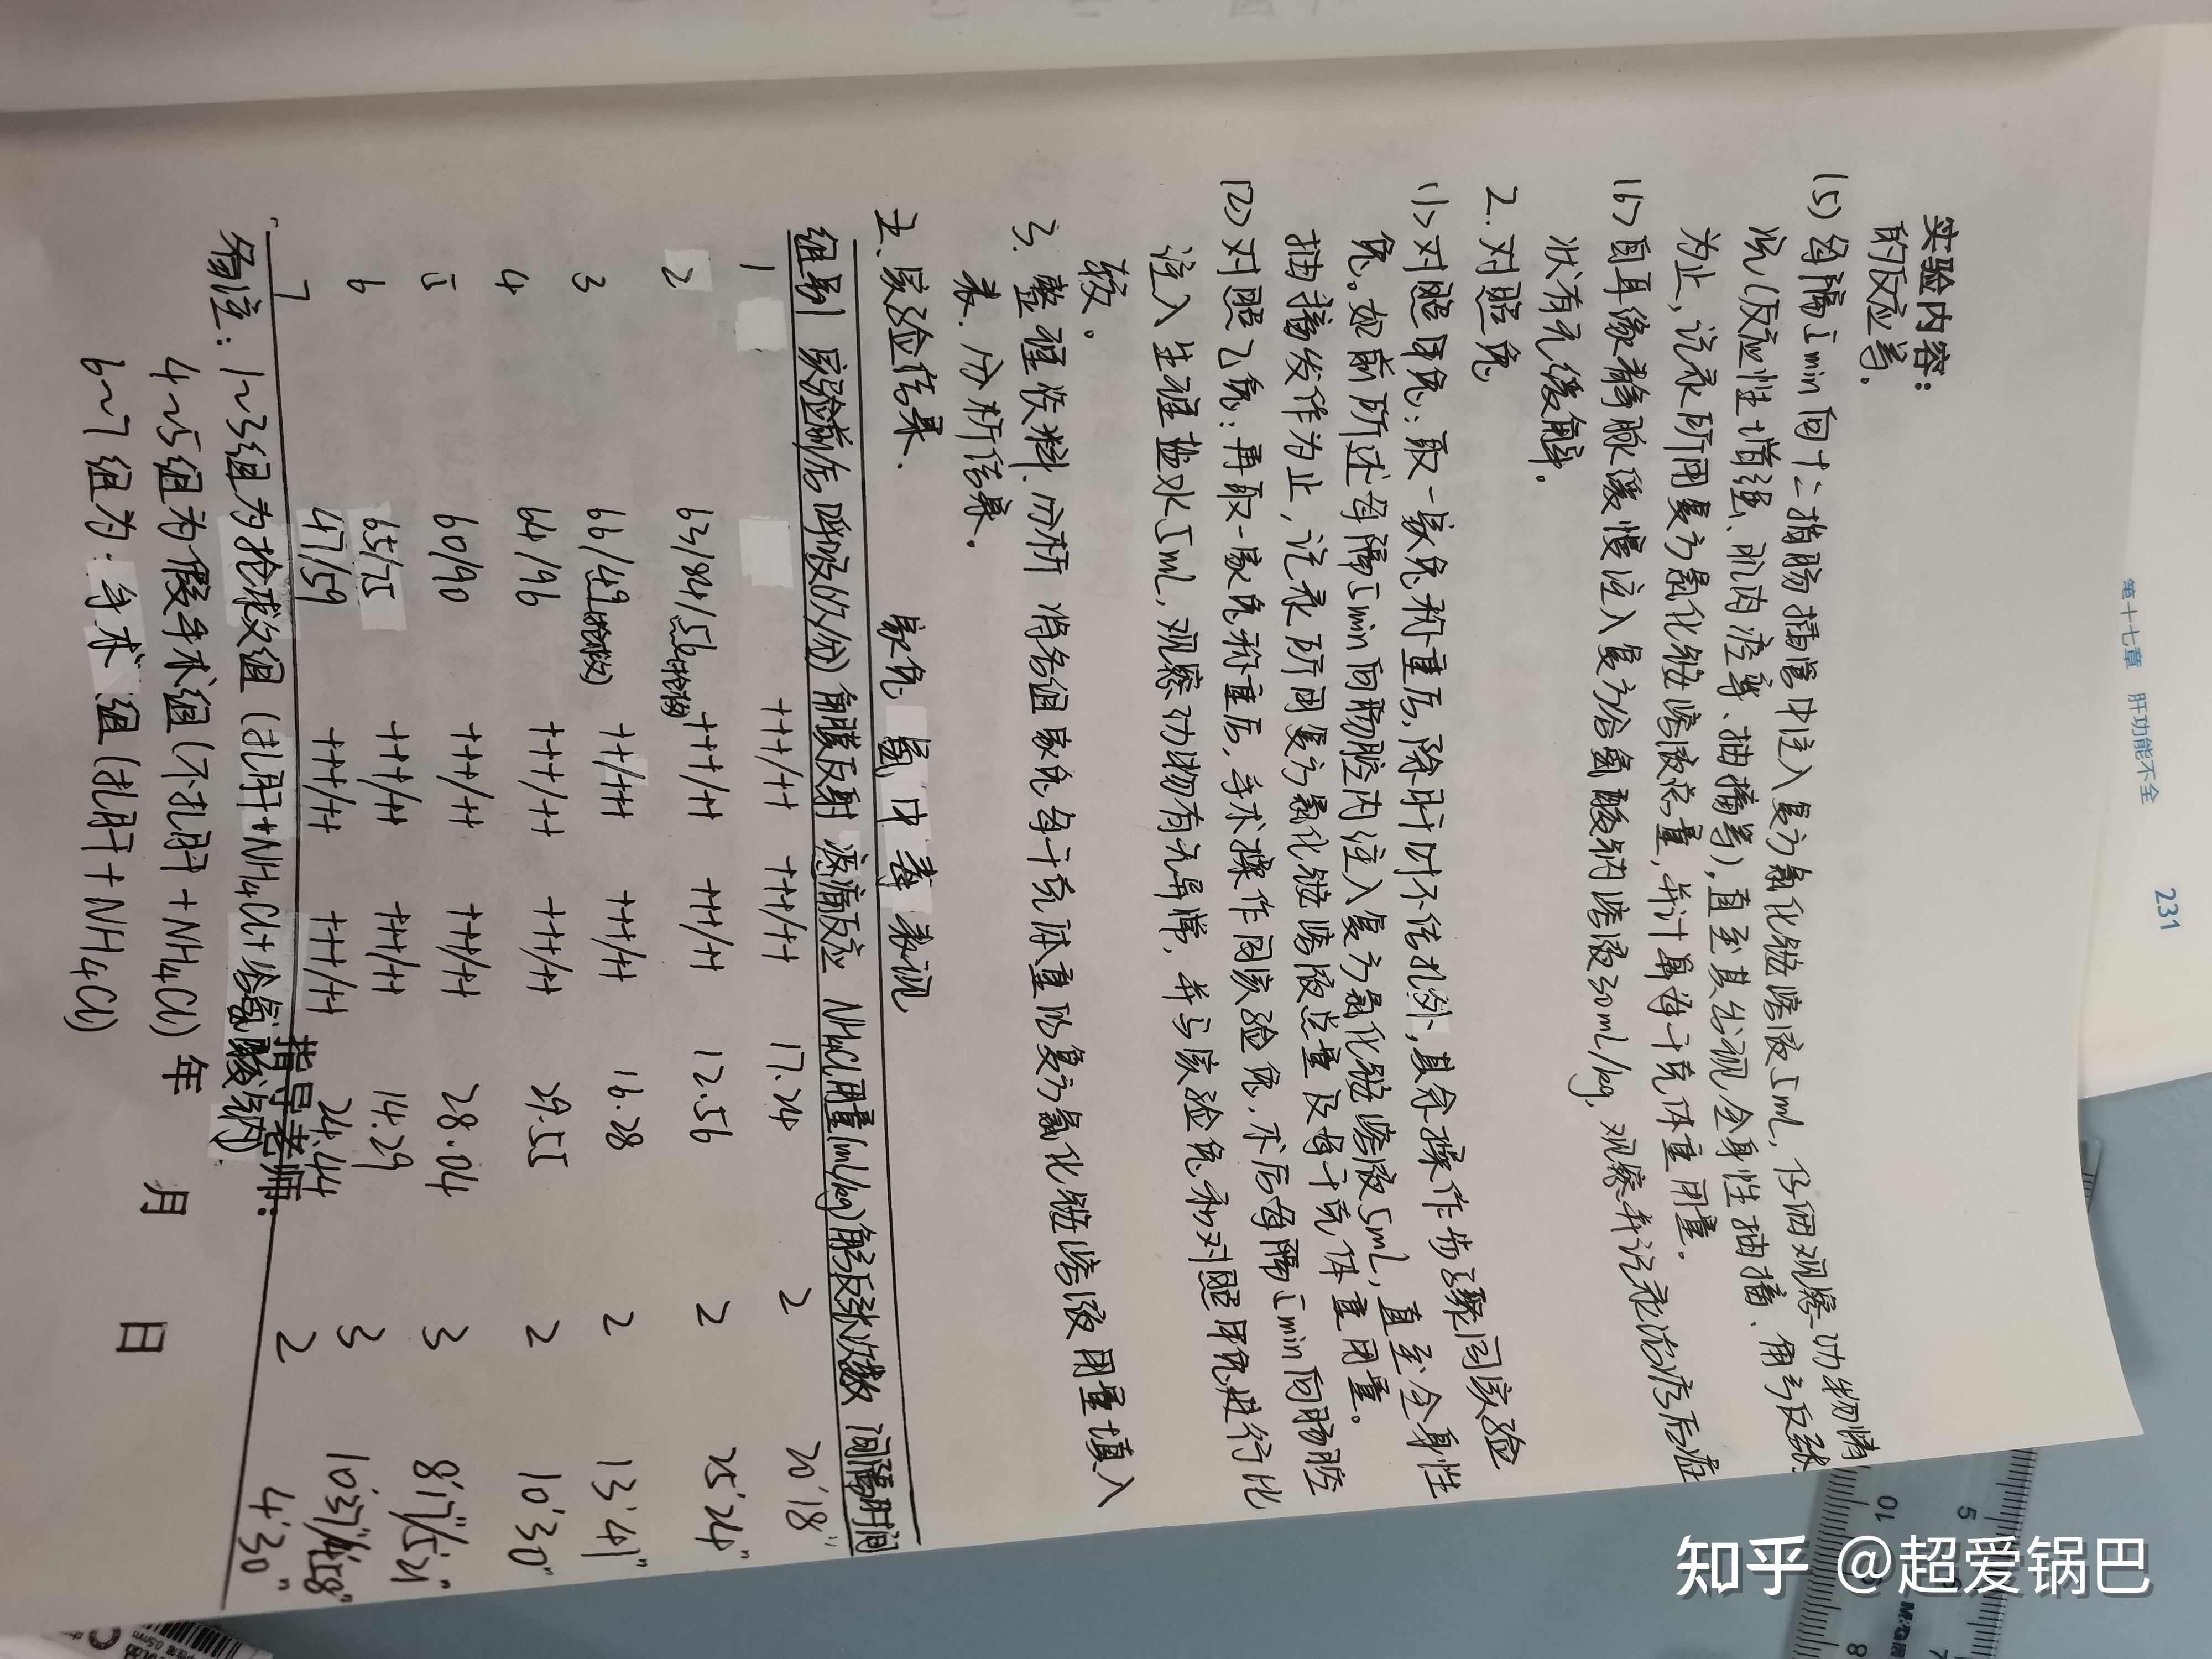 第十七章 肝功能不全 231
实验内容：
的反应等．
(5) 每隔5min向十二指肠插管中注入复方氯化铵溶液5mL，仔细观察动物情
况(反应性增强、肌肉痉挛、抽搐等)，直至其出现全身性抽搐、角弓反张
为止，记录所用复方氯化铵溶液总量，并计算每千克体重用量。
(6) 自耳缘静脉缓慢注入复方谷氨酸钠溶液30mL/kg，观察并记录治疗后症
状有无缓解。
2．对照兔
(1) 对照甲兔：取一家兔称重后，除肝叶不结扎外，其余操作步骤同实验
兔。如前所述每隔5min向肠腔内注入复方氯化铵溶液5mL，直至全身性
抽搐发作为止，记录所用复方氯化铵溶液总量及每千克体重用量。
(2) 对照乙兔：再取一家兔称重后，手术操作同实验兔，术后每隔5min向肠腔
注入生理盐水5mL，观察动物有无异常，并与实验兔和对照甲兔进行比
较。
3．整理资料、分析 将各组家兔每千克体重的复方氯化铵溶液用量填入
表，分析结果。
五、实验结果．
家兔氨中毒表现
组别 实验前后呼吸(次/份) 角膜反射 疼痛反应 NH4Cl用量(mL/kg) 角弓反张次数 间隔时间
1 +++/++ +++/++ 17.24 2 20'18"
2 63/84/56抢救 +++/++ +++/++ 12.56 2 25'24"
3 66/49(抢救) ++/+++ +++/++ 16.28 2 13'41"
4 64/96 +++/++ +++/++ 29.55 2 10'30"
5 60/90 +++/++ +++/++ 28.04 3 8'17"/5'21"
6 65/75 +++/++ +++/++ 14.29 3 10'37"/4'58"
7 47/59 +++/++ +++/++ 24.44 2 4'30"
备注：1~3组为抢救组(扎肝+NH4Cl+谷氨酸钠)
4~5组为假手术组(不扎肝+NH4Cl)
6~7组为：手术组(扎肝+NH4Cl)
指导老师：
年 月 日
10 5
8 7
0.5mm
知乎 @超爱锅巴